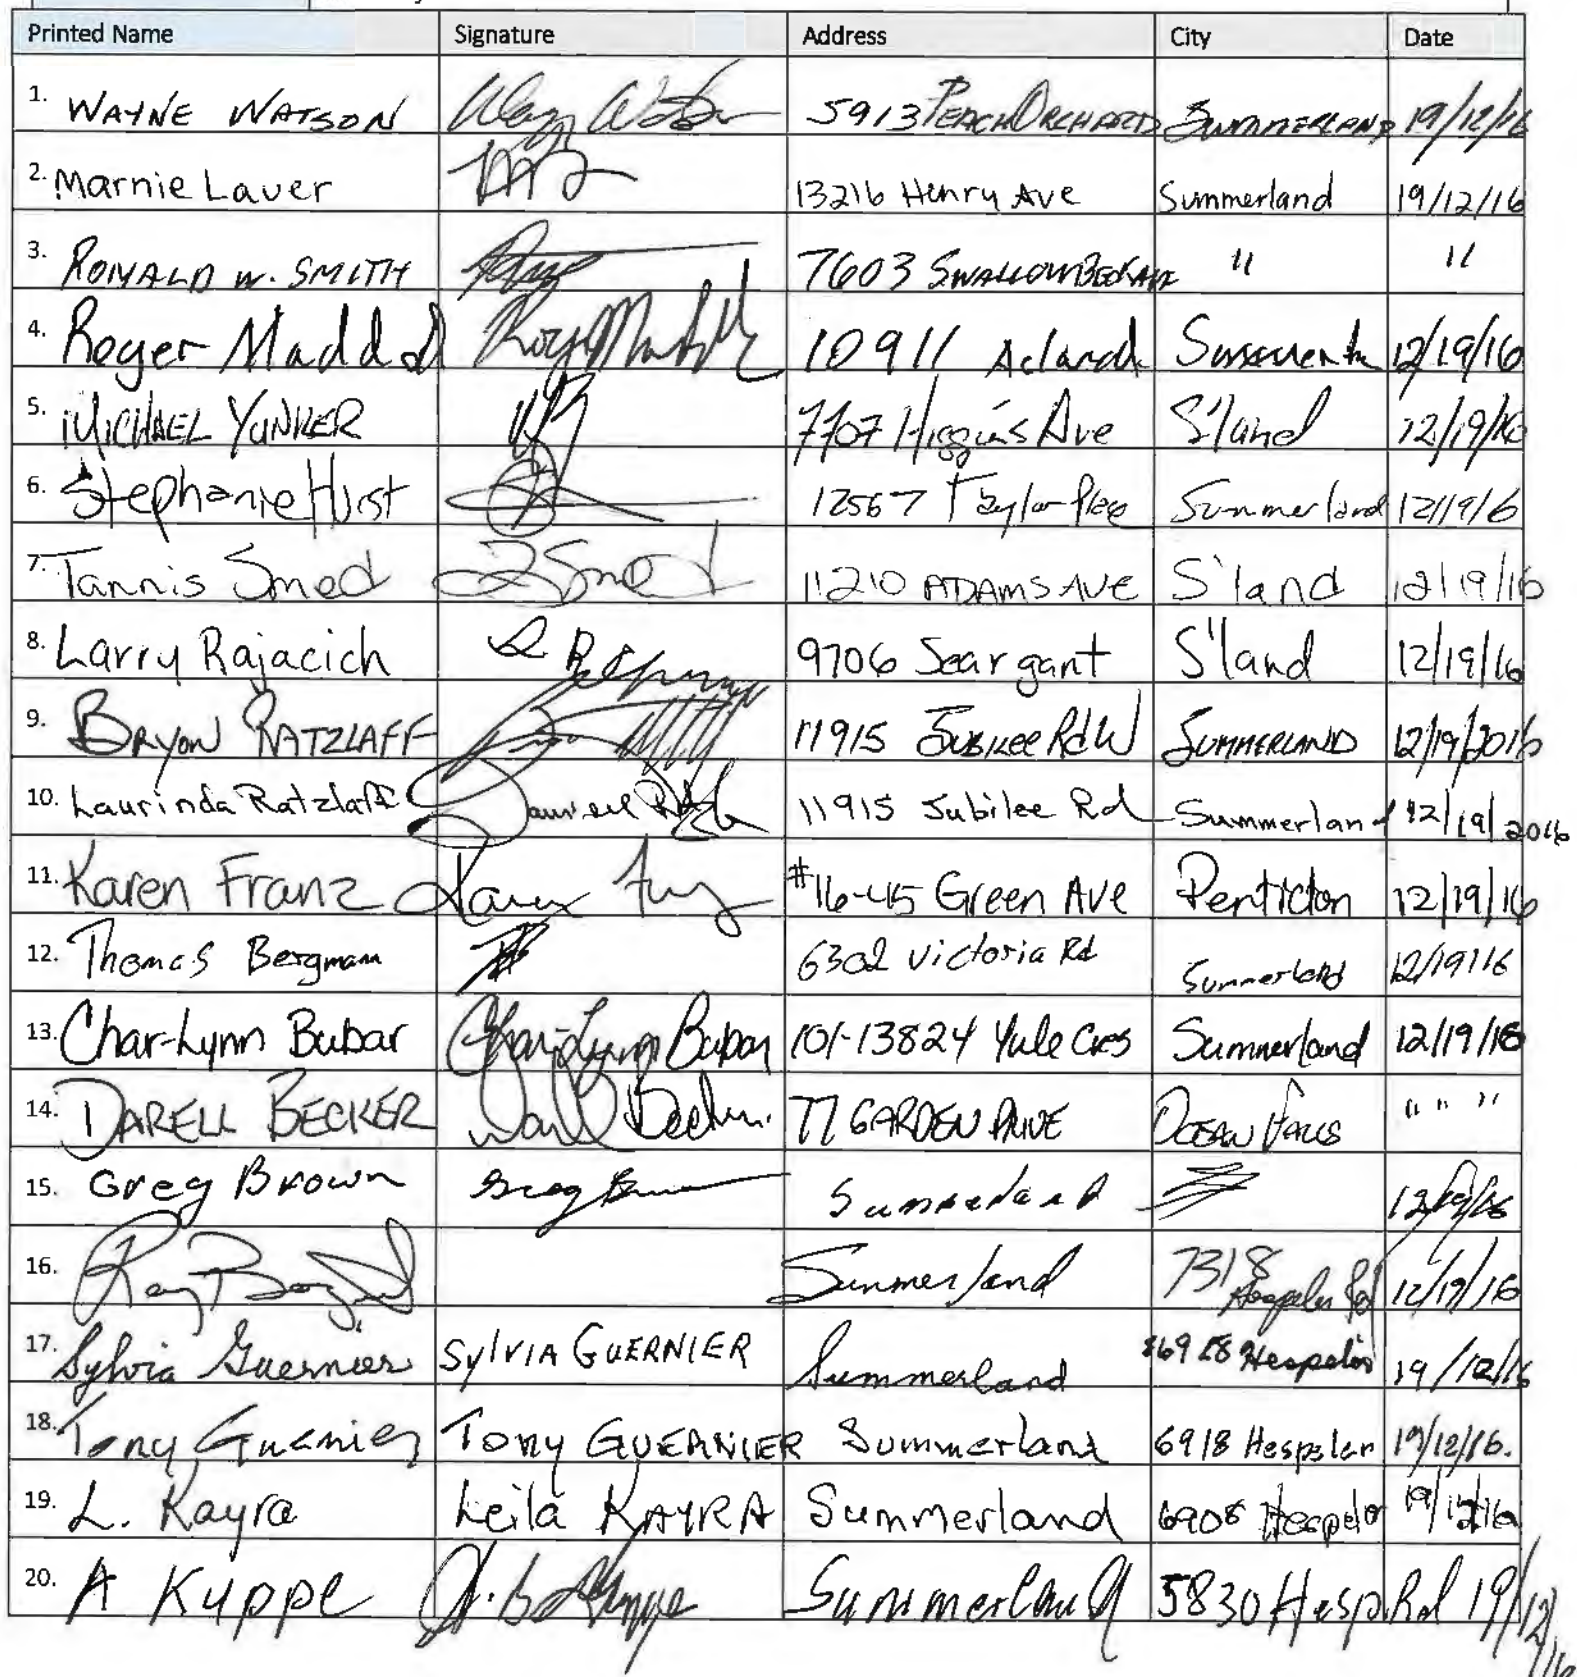 Printed Name Signature Address City Date
1. WAYNE WATSON 5913 PEACH ORCHARD SUMMERLAND 19/12/16
2. Marnie Lauer 13216 Henry Ave Summerland 19/12/16
3. RONALD W. SMITH 7603 " "
4. Roger 10911 Acland 12/19/16
5. MICHAEL YUNKER 7707 Higgins Ave S'land 12/19/16
6. Stephanie Hurst 12567 Taylor Place Summerland 12/19/16
7. Tannis Smed TSmed 11210 ADAMS AVE S'land 12/19/16
8. Larry Rajacich 9706 Seargant S'land 12/19/16
9. BRYON RATZLAFF 11915 JUBILEE Rd W SUMMERLAND 12/19/2016
10. Laurinda Ratzlaff 11915 Jubilee Rd Summerland 12/19/2016
11. Karen Franz Karen #16-45 Green Ave Penticton 12/19/16
12. Thomas Bergmann 6302 Victoria Rd Summerland 12/19/16
13. Char-Lynn Bubar Char-Lynn Bubar 101-13824 Yule Cres Summerland 12/19/16
14. DARELL BECKER Darell Becker 77 GARDEN DRIVE OCEAN FALLS " " "
15. Greg Brown Greg Summerland 12/19/16
16. Summerland 7318 Hespeler Rd 12/19/16
17. Sylvia Guernier SYLVIA GUERNIER Summerland Hespeler 19/12/16
18. Tony Guernier TONY GUERNIER Summerland 6918 Hespeler 19/12/16.
19. L. Kayra Leila KAYRA Summerland 6908 Hespeler 19/12/16
20. A Kuppe Summerland 5830 Hesp Rd 19/12/16